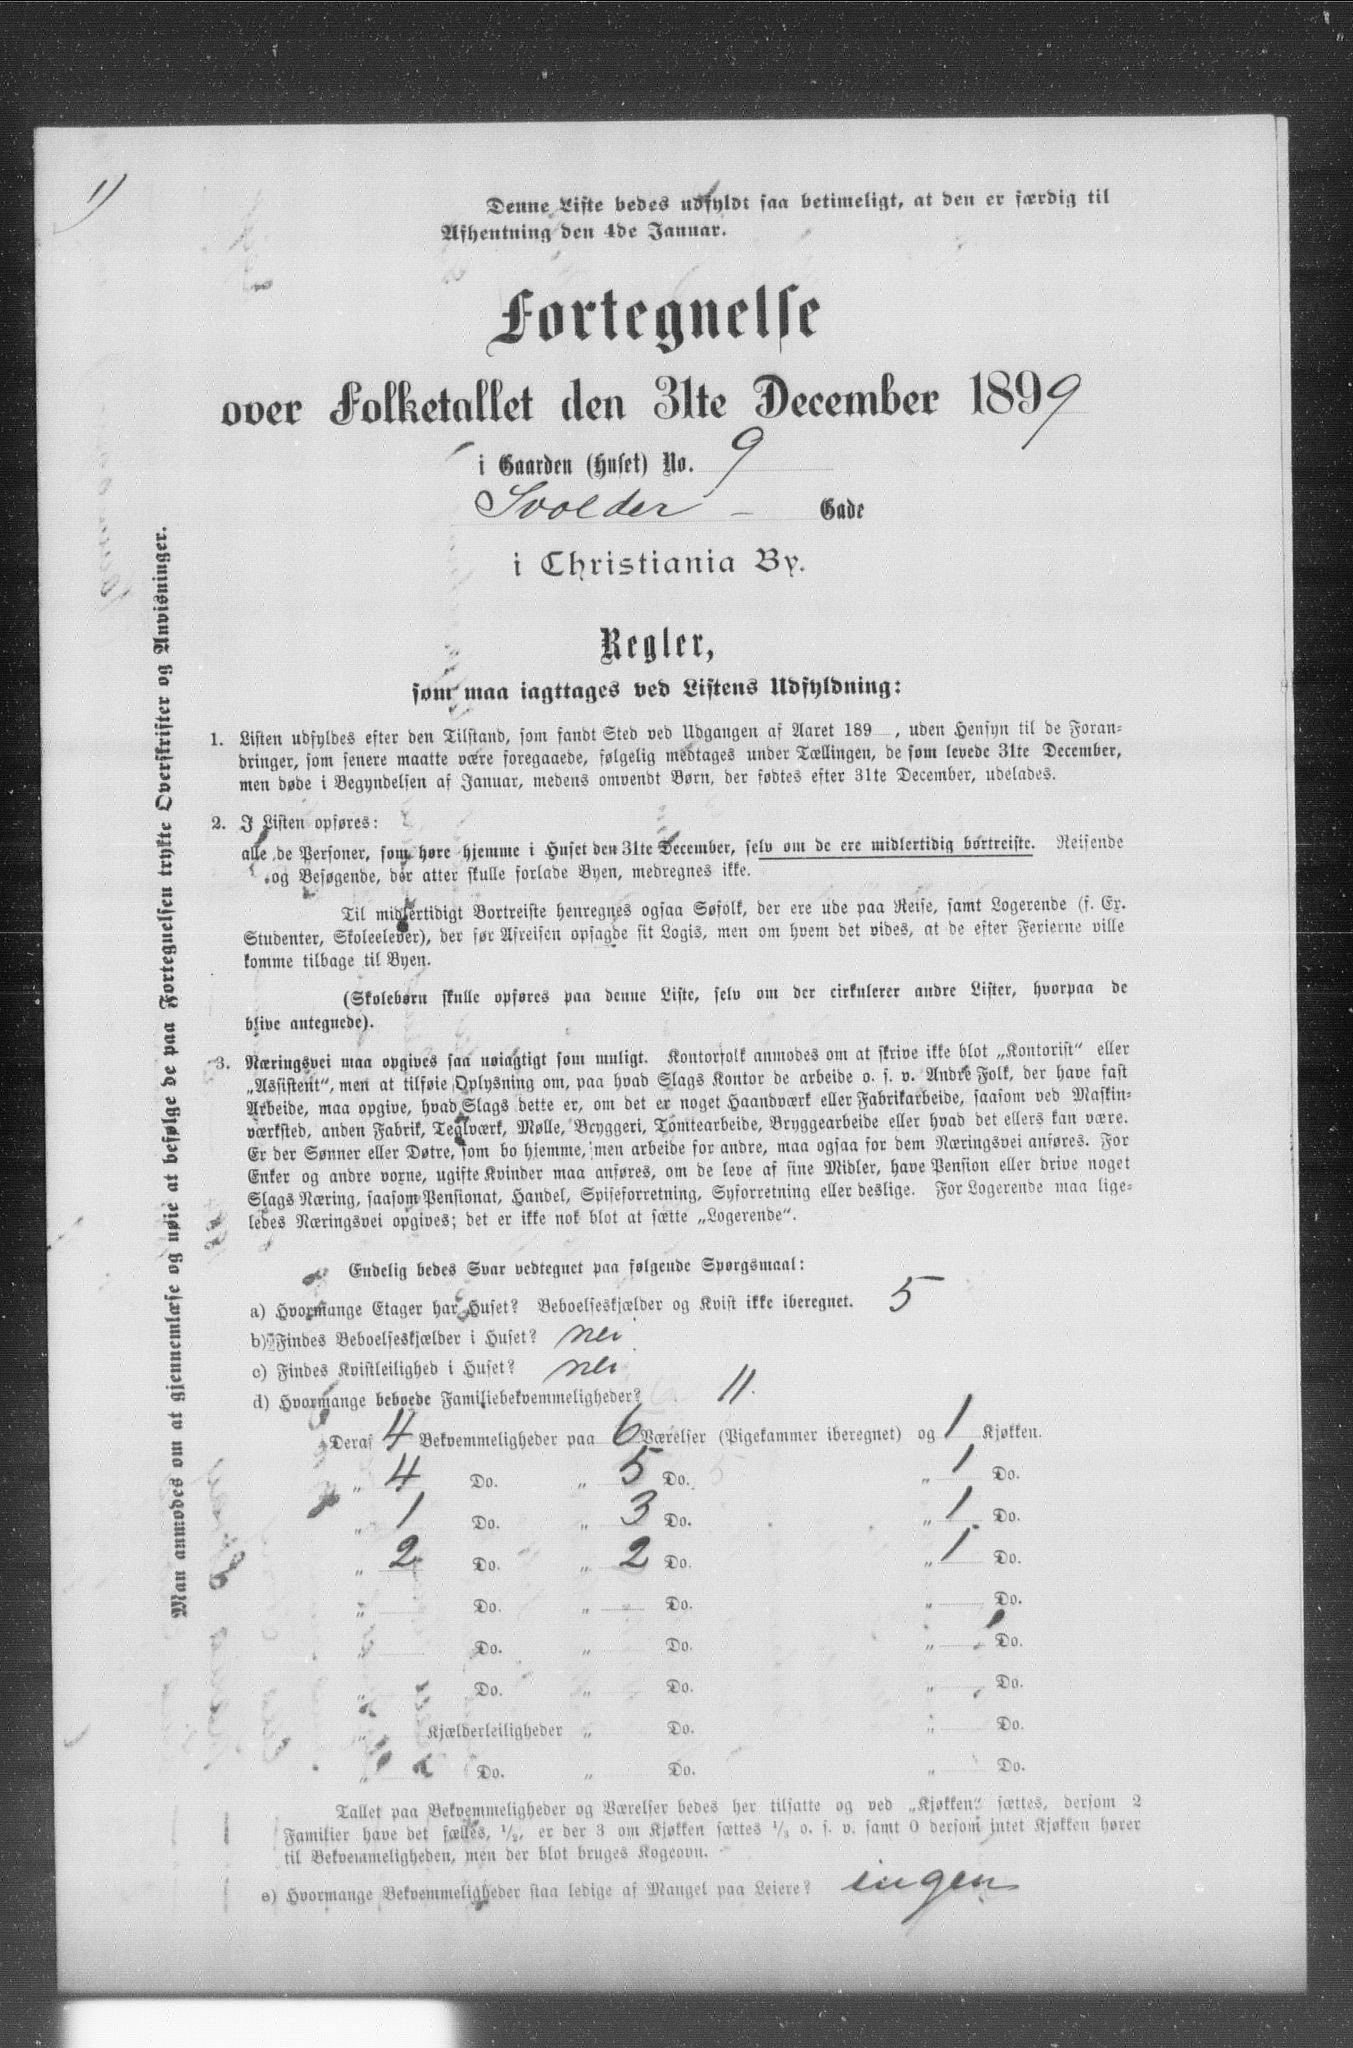 1)
Denne Liste bedes udfyldt saa betimeligt, at den er færdig til
Afhentning den 4de Januar.
Fortegnelse
over Folketallet den 31te December 1899
i Gaarden (Huset) No. 9
Svolder - Gade
i Christiania By.
Regler,
som maa iagttages ved Listens Udfyldning:
1. Listen udfyldes efter den Tilstand, som fandt Sted ved Udgangen af Aaret 189 , uden Hensyn til de Foran-
dringer, som senere maatte være foregaaede, følgelig medtages under Tællingen, de som levede 31te December,
men døde i Begyndelsen af Januar, medens omvendt Børn, der fødtes efter 31te December, udelades.
2. I Listen opføres:
alle de Personer, som høre hjemme i Huset den 31te December, selv om de ere midlertidig bortreiste. Reisende
og Besøgende, der atter skulle forlade Byen, medregnes ikke.
Til midlertidigt Bortreiste henregnes ogsaa Søfolk, der ere ude paa Reise, samt Logerende (f. Ex.
Studenter, Skoleelever), der før Afreisen opsagde sit Logis, men om hvem det vides, at de efter Ferierne ville
komme tilbage til Byen.
(Skolebørn skulle opføres paa denne Liste, selv om der cirkulerer andre Lister, hvorpaa de
blive antegnede).
3. Næringsvei maa opgives saa nøiagtigt som muligt. Kontorfolk anmodes om at skrive ikke blot „Kontorist“ eller
„Assistent“, men at tilføie Oplysning om, paa hvad Slags Kontor de arbeide o. s. v. Andre Folk, der have fast
Arbeide, maa opgive, hvad Slags dette er, om det er noget Haandværk eller Fabrikarbeide, saasom ved Maskin-
værksted, anden Fabrik, Teglværk, Mølle, Bryggeri, Tomtearbeide, Bryggearbeide eller hvad det ellers kan være.
Er der Sønner eller Døtre, som bo hjemme, men arbeide for andre, maa ogsaa for dem Næringsvei anføres. For
Enker og andre voxne, ugifte Kvinder maa anføres, om de leve af sine Midler, have Pension eller drive noget
Slags Næring, saasom Pensionat, Handel, Spiseforretning, Syforretning eller deslige. For Logerende maa lige-
ledes Næringsvei opgives; det er ikke nok blot at sætte „Logerende“.
Endelig bedes Svar vedtegnet paa følgende Spørgsmaal:
a) Hvormange Etager har Huset? Beboelseskjælder og Kvist ikke iberegnet. 5
b) Findes Beboelseskjælder i Huset? nei
c) Findes Kvistleilighed i Huset? nei
d) Hvormange beboede Familiebekvemmeligheder? 11.
Deraf 4 Bekvemmeligheder paa 6 Værelser (Pigekammer iberegnet) og 1 Kjøkken.
„ 4 Do. „ 5 Do. „ 1 Do.
„ 1 Do. „ 3 Do. „ 1 Do.
„ 2 Do. „ 2 Do. „ 1 Do.
„ Do. „ Do. „ Do.
„ Do. „ Do. „ Do.
„ Do. „ Do. „ Do.
„ Kjælderleiligheder „ Do. „ Do.
„ Do. „ Do. „ Do.
Tallet paa Bekvemmeligheder og Værelser bedes her tilsatte og ved „Kjøkken“ sættes, dersom 2
Familier have det fælles, 1/2, er der 3 om Kjøkken sættes 1/3 o. s. v. samt 0 dersom intet Kjøkken hører
til Bekvemmeligheden, men der blot bruges Kogeovn.
e) Hvormange Bekvemmeligheder staa ledige af Mangel paa Leiere? ingen
Man anmodes om at gjennemlæse og nøie at befølge de paa Fortegnelsen trykte Overskrifter og Anvisninger.